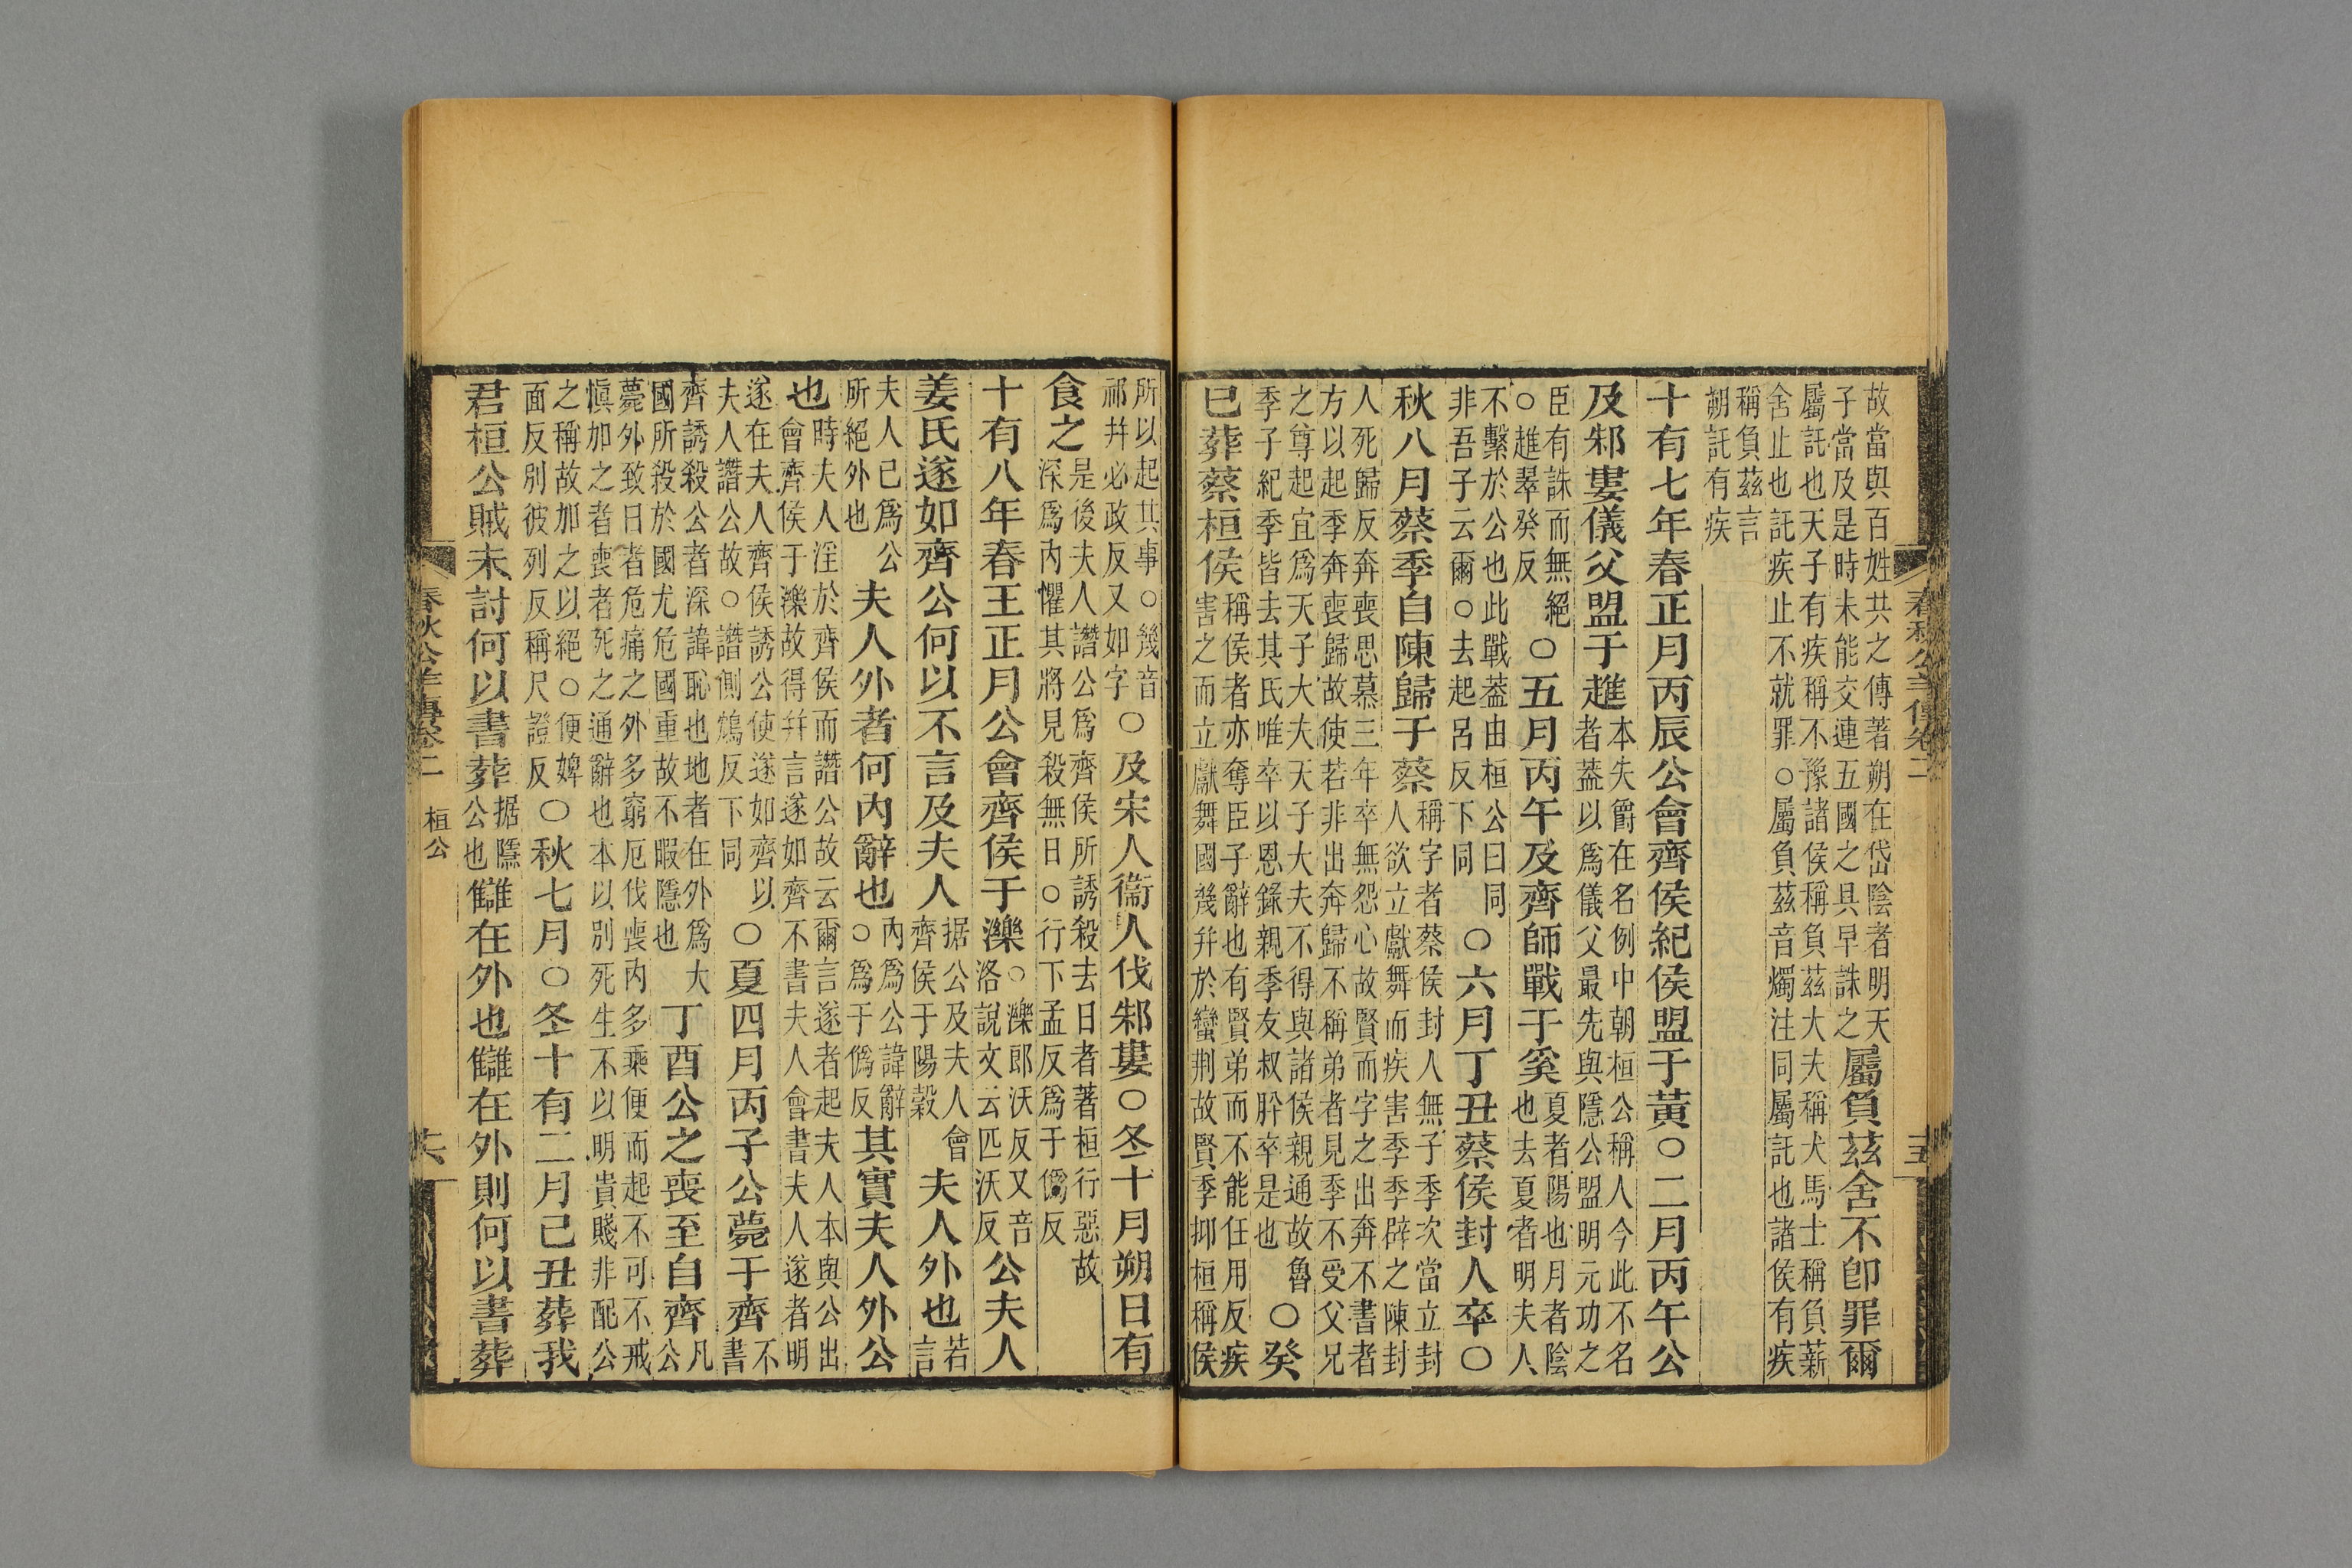 故當與百姓共之傳著朔在岱陰者明天
子當及是時未能交連五國之具早誅之
屬負茲舍不卽罪爾
屬託也天子有疾稱不豫諸侯稱負茲大夫稱犬馬士稱負薪
舍止也託疾止不就罪○屬負茲音燭注同屬託也諸侯有疾
稱負茲言
朔託有疾
十有七年春正月丙辰公會齊侯紀侯盟于黃○二月丙午公
及邾婁儀父盟于趡
本失爵在名例中朝桓公稱人今此不名
者蓋以爲儀父最先與隱公盟明元功之
臣有誅而無絕
○趡翠癸反
○五月丙午及齊師戰于奚
夏者陽也月者陰
也去夏者明夫人
不繫於公也此戰蓋由桓公曰同
非吾子云爾○去起呂反下同
○六月丁丑蔡侯封人卒○
秋八月蔡季自陳歸于蔡
稱字者蔡侯封人無子季次當立封
人欲立獻舞而疾害季季辟之陳封
人死歸反奔喪思慕三年卒無怨心故賢而字之出奔不書者
方以起季奔喪歸故使若非出奔歸不稱弟者見季不受父兄
之尊起宜爲天子大夫天子大夫不得與諸侯親通故魯
季子紀季皆去其氏唯卒以恩錄親季友叔肸卒是也
○癸
巳葬蔡桓侯
稱侯者亦奪臣子辭也有賢弟而不能任用反疾
害之而立獻舞國幾幷於蠻荆故賢季抑桓稱侯
春秋公羊傳卷二
所以起其事○幾音
祁幷必政反又如字
○及宋人衞人伐邾婁○冬十月朔日有
食之
是後夫人譖公爲齊侯所誘殺去日者著桓行惡故
深爲內懼其將見殺無日○行下孟反爲于僞反
十有八年春王正月公會齊侯于濼
○濼郎沃反又音
洛說文云匹沃反
公夫人
姜氏遂如齊公何以不言及夫人
据公及夫人會
齊侯于陽穀
夫人外也
若
言
夫人已爲公
所絕外也
夫人外者何內辭也
內爲公諱辭
○爲于僞反
其實夫人外公
也
時夫人淫於齊侯而譖公故云爾言遂者起夫人本與公出
會齊侯于濼故得幷言遂如齊不書夫人會書夫人遂者明
遂在夫人齊侯誘公使遂如齊以
夫人譖公故○譖側鴆反下同
○夏四月丙子公薨于齊
不
書
齊誘殺公者深諱恥也地者在外爲大
國所殺於國尤危國重故不暇隱也
丁酉公之喪至自齊
凡
公
薨外致日者危痛之外多窮厄伐喪內多乘便而起不可不戒
愼加之者喪者死之通辭也本以別死生不以明貴賤非配公
之稱故加之以絕○便婢
面反別彼列反稱尺證反
○秋七月○冬十有二月己丑葬我
君桓公賊未討何以書葬
据隱
公也
讎在外也讎在外則何以書葬
春秋公羊傳卷二
桓公